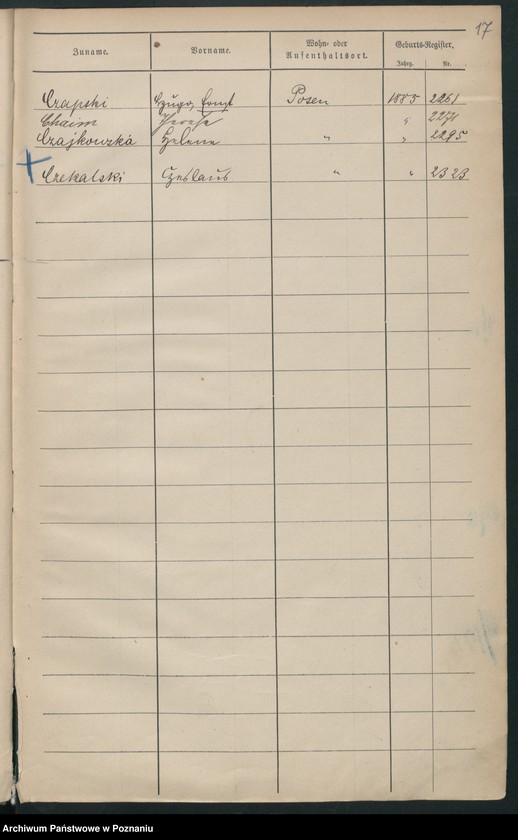 17
Zuname. Vorname. Wohn- oder Aufenthaltsort. Geburts-Register,
Jahrg. Nr.
Czapski Hugo, Ernst Posen 1885 2261
Chaim Therese " 2271
Czajkowzka Helene " " 2295
Czekalski Czeslaus " " 2323
Archiwum Państwowe w Poznaniu